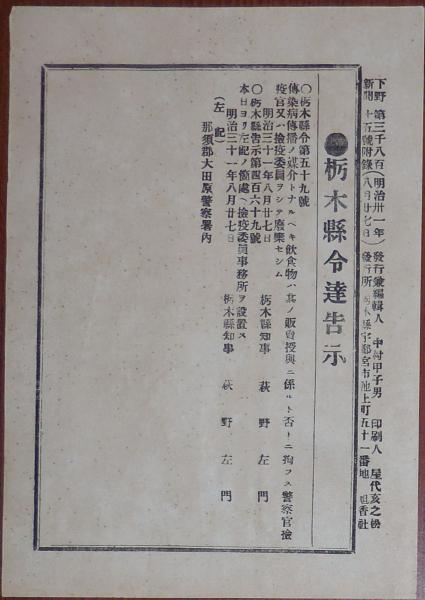 下野 第三千八百 (明治卅一年 發行兼編輯人 中村甲子男 印刷人 屋代亥之松
新聞 十五號附錄 八月廿七日) 發行所 栃木縣宇都宮市池上町五十一番地 香社
●栃木縣令達告示
○栃木縣令第五十九號
傳染病傳播ノ媒介トナルヘキ飲食物ハ其ノ販賣授與ニ係ルト否トニ拘ラス警察官檢
疫官又ハ檢疫委員ヲシテ廢棄セシム
明治三十一年八月廿七日 栃木縣知事 萩野左門
○栃木縣告示第四百六十九號
本日ヨリ左記ノ箇處ヘ檢疫委員事務所ヲ設置ス
明治三十一年八月廿七日 栃木縣知事 萩野左門
(左記)
那須郡大田原警察署內